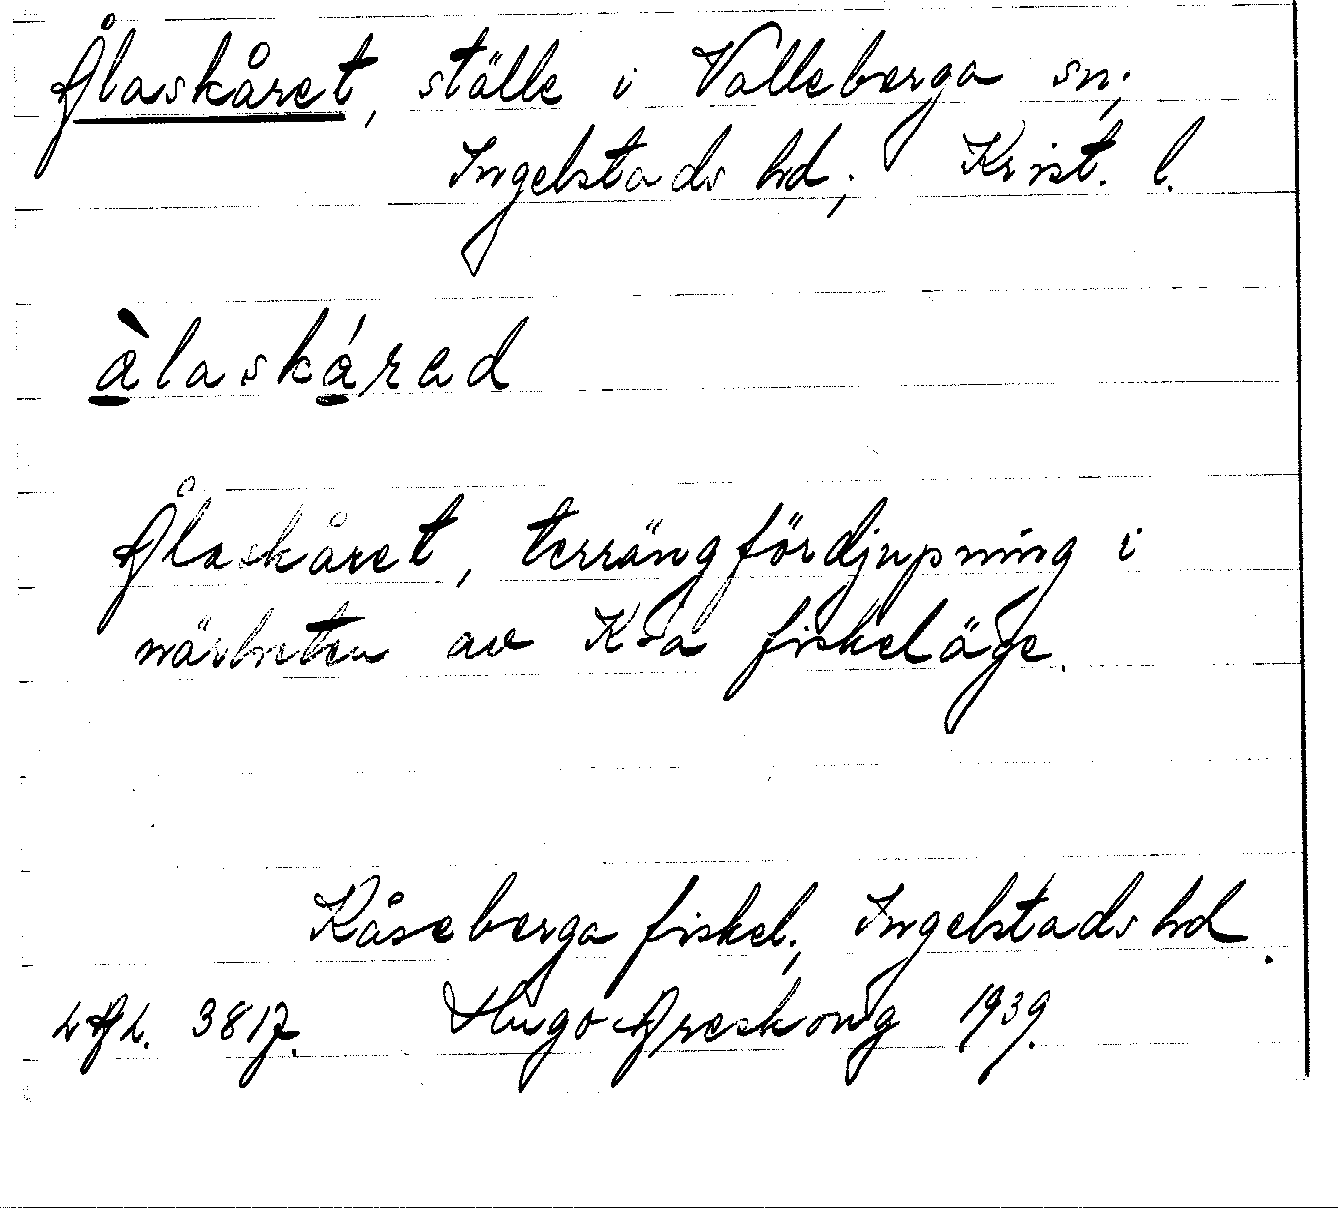 Ålaskåret, ställe i Valleberga sn;
Ingelstads hd; Krist. l.
àlaskárad
Ålaskåret, terrängfördjupning i
närheten av K-a fiskeläge.
Kåseberga fiskel., Ingelstads hd.
LAL. 3817. Hugo Areskoug 1939.